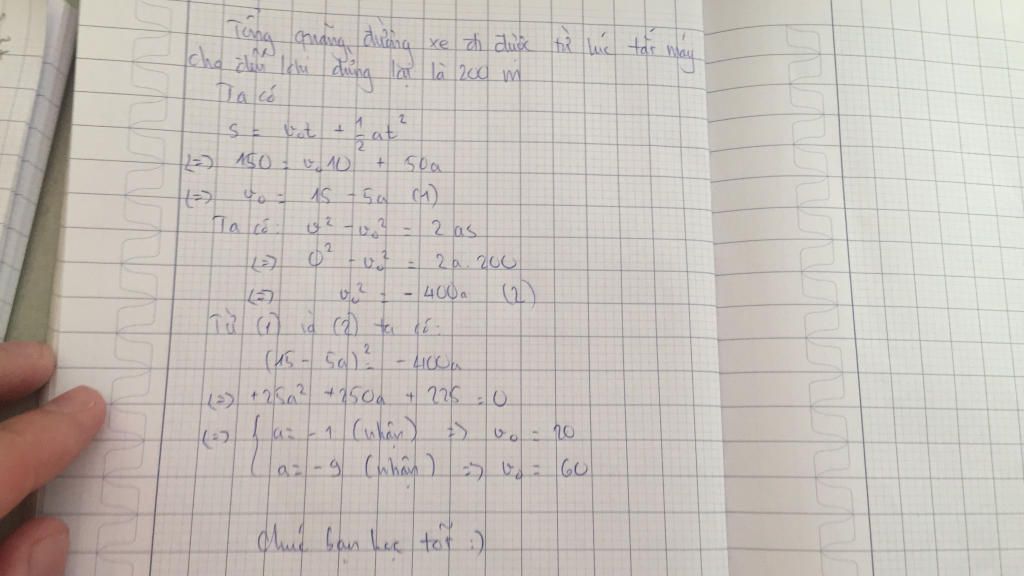 Tổng quãng đường xe đi được từ lúc tắt máy
cho đến khi dừng lại là 200 m
Ta có
s = v₀t + 1/2 at²
(=) 150 = v₀10 + 50a
(=) v₀ = 15 - 5a (1)
Ta có: v² - v₀² = 2as
(=) 0² - v₀² = 2a.200
(=) v₀² = - 400a (2)
Từ (1) và (2) ta có:
(15 - 5a)² = - 400a
(=) +25a² + 250a + 225 = 0
(=) { a = - 1 (nhận) => v₀ = 20
a = - 9 (nhận) => v₀ = 60
Chúc bạn học tốt :)